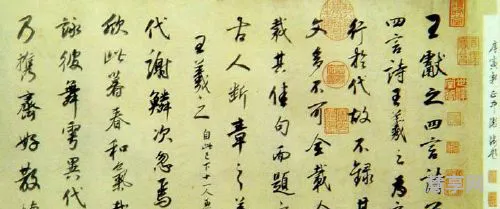 王獻之四言詩
四言詩王羲之為
行於代故不錄其
文多不可全載
裁其佳句而題之
古人斷章之義
王羲之 自此已下十一人五
代謝鱗次忽焉
欣此暮春和氣載
詠彼舞雩異代
乃攜齊好散